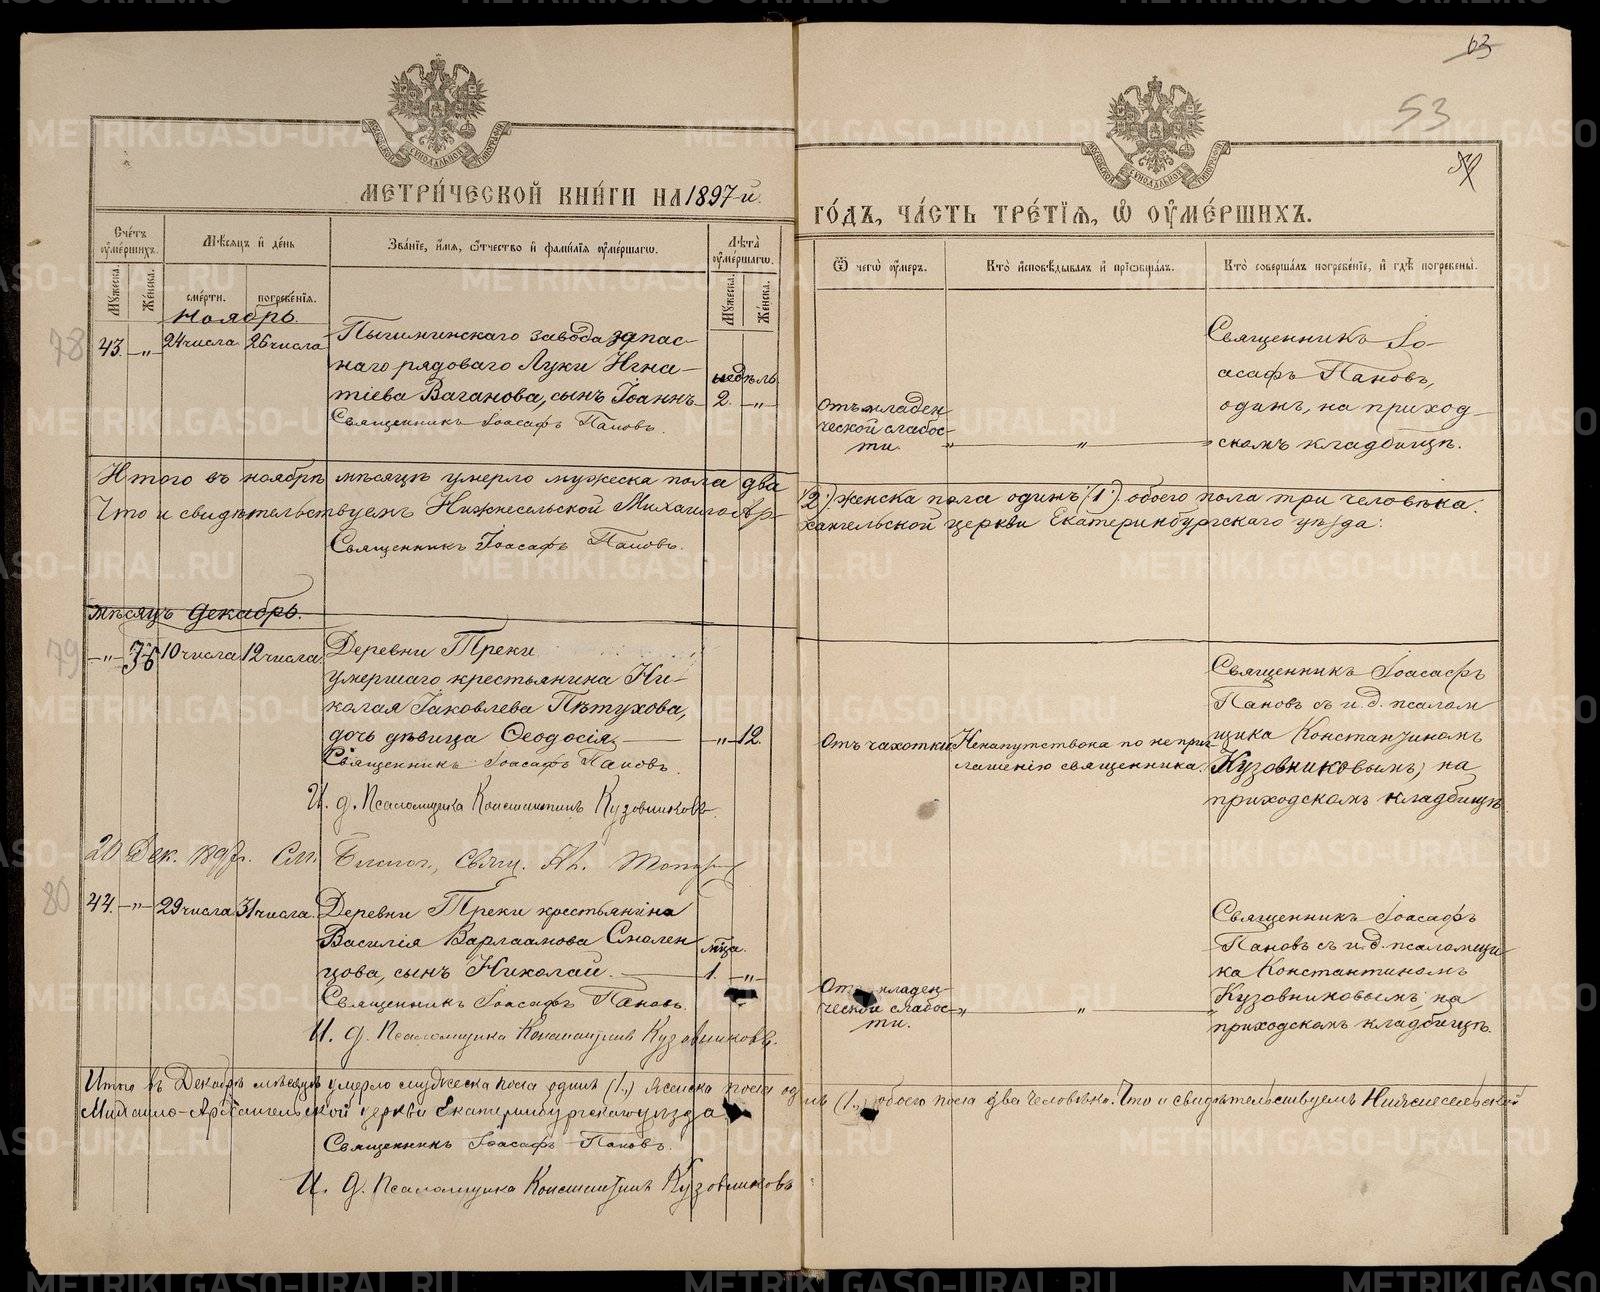 63
53
МЕТРИ́ЧЕСКОЙ КНИ́ГИ НА 1897-й
ГО́ДЪ, ЧА́СТЬ ТРЕ́ТІѦ, Ѽ ОУМЕ́РШИХЪ.
Сче́тъ оуме́ршихъ.
Мѣ́сѧцъ и де́нь
Зва́нїе, и́мѧ, ѻ҆́тчество и фами́лїѧ оуме́ршагѡ.
Лѣ́та оуме́ршагѡ.
Ѿ чегѡ̀ оу́меръ.
Кто̀ и҆сповѣ́дывалъ и҆ прїѡбща́лъ.
Кто̀ соверша́лъ погребе́нїе, и҆ гдѣ̀ погребены̀.
Му́жеска.
Же́нска.
сме́рти.
погребе́нїя.
Му́жеска.
Же́нска.
Ноябрь.
78
43. —„— 24 числа 26 числа
Пышминскаго завода запас-
наго рядоваго Луки Игна-
тіева Ваганова, сынъ Іоаннъ
недѣль
2. —„—
Священникъ Іоасафъ Пановъ.
Отъ младен
ческой слабос-
ти.
„ — „ — „
Священникъ Іо-
асафъ Пановъ,
одинъ, на приход-
скомъ кладбищѣ.
Итого въ ноябрѣ мѣсяцѣ умерло мужеска пола два (2.) женска пола одинъ (1.) обоего пола три человѣка.
Что и свидѣтельствуемъ Нижнесельской Михаило-Архангельской церкви Екатеринбургскаго уѣзда:
Священникъ Іоасафъ Пановъ.
мѣсяцъ Декабрь.
79
—„— 36 10 числа 12 числа.
Деревни Треки
умершаго крестьянина Ни-
колая Іаковлева Пѣтухова,
дочь дѣвица Ѳеодосія — „ — 12.
Священникъ Іоасафъ Пановъ.
И. д. Псаломщика Константинъ Кузовниковъ.
Отъ чахотки
Ненапутствована по непри-
глашенію священника.
Священникъ Іоасафъ
Пановъ съ и. д. псалом
щика Константиномъ
Кузовниковымъ, на
приходскомъ кладбищѣ.
20 Дек. 1897 г. См. Благоч., Свящ.
80
44. —„— 29 числа 31 числа.
Деревни Треки крестьянина
Василія Варлаамова Смолен
цова, сынъ Николай.
мца.
1. —„—
Священникъ Іоасафъ Пановъ.
И. д. Псаломщика Константинъ Кузовниковъ.
Отъ младен-
ческой слабос-
ти.
„ — „ — „
Священникъ Іоасафъ
Пановъ съ и. д. псаломщи-
ка Константиномъ
Кузовниковымъ, на
приходскомъ кладбищѣ.
Итого въ Декабрѣ мѣсяцѣ умерло мужеска пола одинъ (1.,) женска пола одинъ (1.,) обоего пола два человѣка. Что и свидѣтельствуемъ Нижнесельской
Михаило-Архангельской церкви Екатеринбургскаго уѣзда
Священникъ Іоасафъ Пановъ.
И. д. Псаломщика Константинъ Кузовниковъ
METRIKI.GASO-URAL.RU